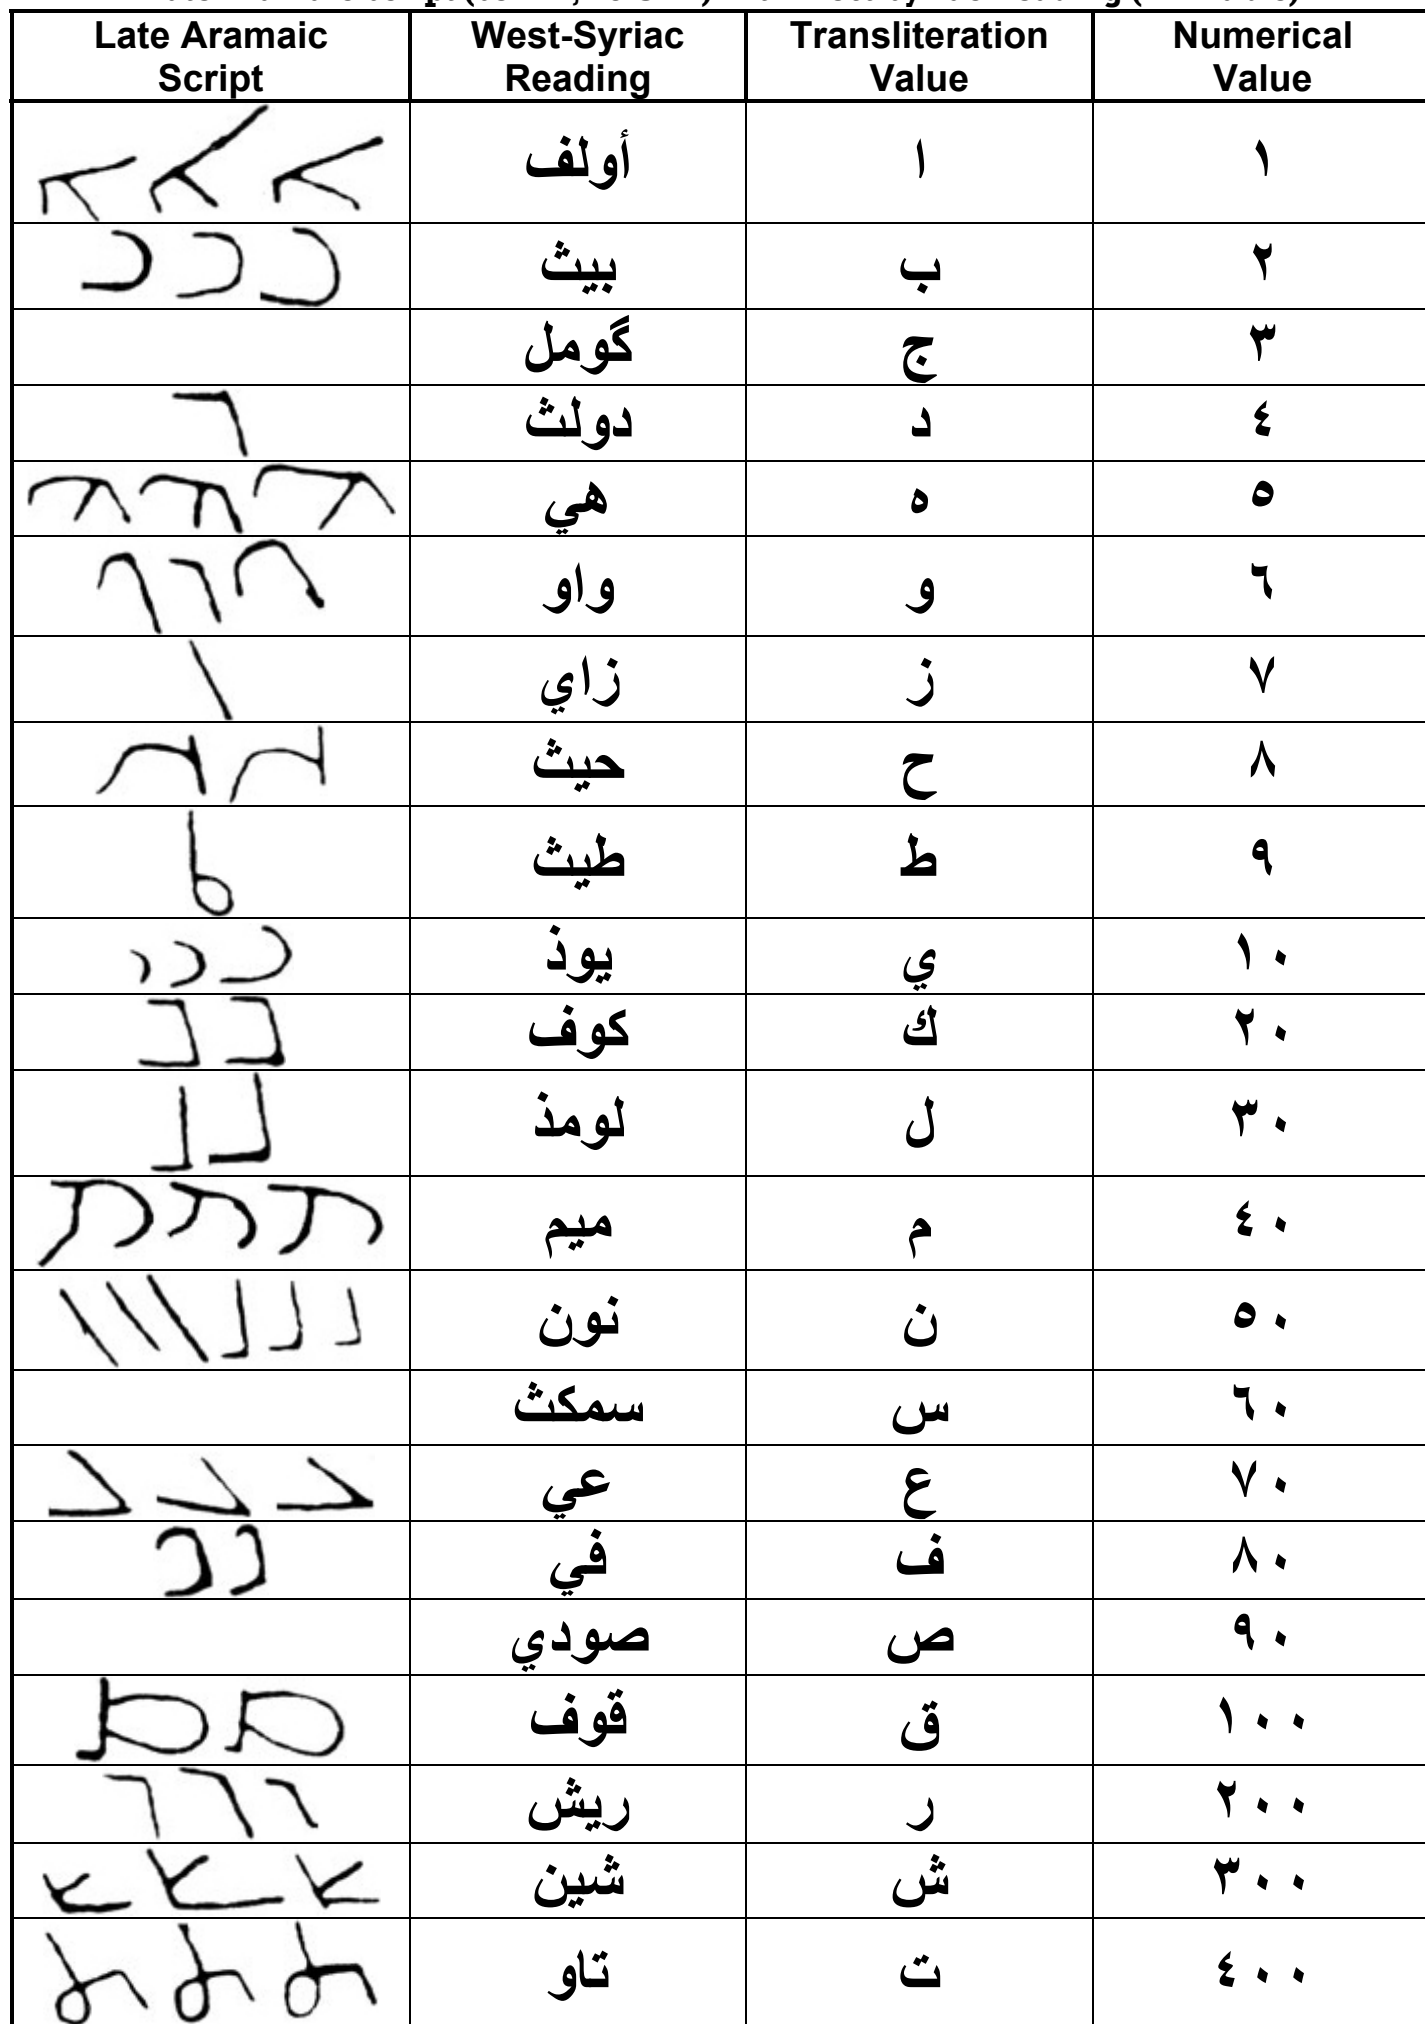 Late Aramaic Script West-Syriac Reading Transliteration Value Numerical Value
أولف ا ١
بيث ب ٢
گومل ج ٣
دولث د ٤
هي ه ٥
واو و ٦
زاي ز ٧
حيث ح ٨
طيث ط ٩
يوذ ي ١٠
كوف ك ٢٠
لومذ ل ٣٠
ميم م ٤٠
نون ن ٥٠
سمكث س ٦٠
عي ع ٧٠
في ف ٨٠
صودي ص ٩٠
قوف ق ١٠٠
ريش ر ٢٠٠
شين ش ٣٠٠
تاو ت ٤٠٠